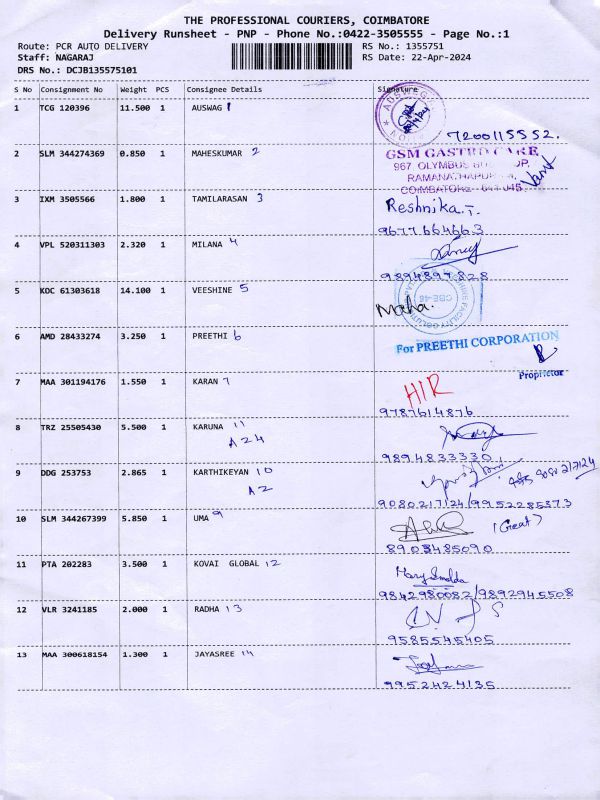 THE PROFESSIONAL COURIERS, COIMBATORE
Delivery Runsheet - PNP - Phone No.:0422-3505555 - Page No.:1
Route: PCR AUTO DELIVERY RS No.: 1355751
Staff: NAGARAJ RS Date: 22-Apr-2024
DRS No.: DCJB135575101
S No Consignment No Weight PCS Consignee Details Signature
1 TCG 120396 11.500 1 AUSWAG 1
7200115552.
2 SLM 344274369 0.850 1 MAHESKUMAR 2
GSM GASTRO CARE
967, OLYMBUS
RAMANATHAPUR
COIMBATORE - 641 045
3 IXM 3505566 1.800 1 TAMILARASAN 3
Reshnika.T.
9677664663
4 VPL 520311303 2.320 1 MILANA 4
9894897828
5 KDC 61303618 14.100 1 VEESHINE 5
Maha.
CBE-46
6 AMD 28433274 3.250 1 PREETHI 6
For PREETHI CORPORATION
Proprietor
7 MAA 301194176 1.550 1 KARAN 7
HIR
9787614876
8 TRZ 25505430 5.500 1 KARUNA 11
A24
9894833330
9 DDG 253753 2.865 1 KARTHIKEYAN 10
A2
9080217124/9952285373
10 SLM 344267399 5.850 1 UMA 9
(Great)
8903485090
11 PTA 202283 3.500 1 KOVAI GLOBAL 12
Mary Imelda
9842980082/9892945508
12 VLR 3241185 2.000 1 RADHA 13
9585545405
13 MAA 300618154 1.300 1 JAYASREE 14
9952424135